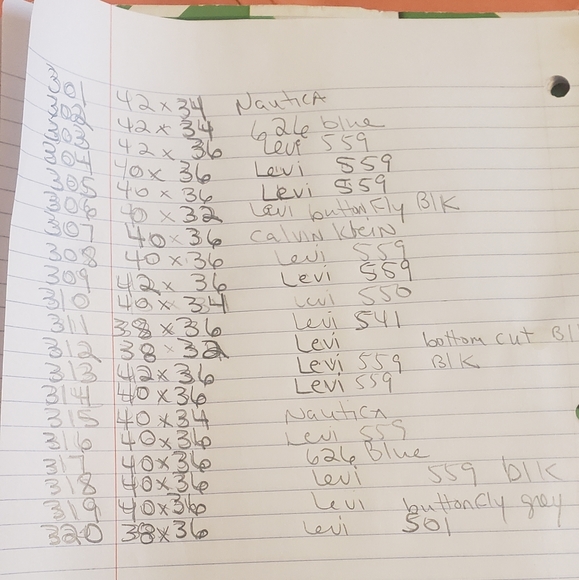 301 42 x 34 Nautica
302 42 x 34 626 blue
303 42 x 36 Levi 559
304 40 x 36 Levi 559
305 40 x 36 Levi 559
306 40 x 32 Levi buttonfly Blk
307 40 x 36 Calvin Klein
308 40 x 36 Levi 559
309 42 x 36 Levi 559
310 40 x 34 Levi 550
311 38 x 36 Levi 541
312 38 x 32 Levi bottom cut
313 42 x 36 Levi 559 Blk
314 40 x 36 Levi 559
315 40 x 34 Nautica
316 40 x 36 Levi 559
317 40 x 36 626 Blue
318 40 x 36 Levi 559 blk
319 40 x 36 Levi buttonfly grey
320 38 x 36 Levi 501